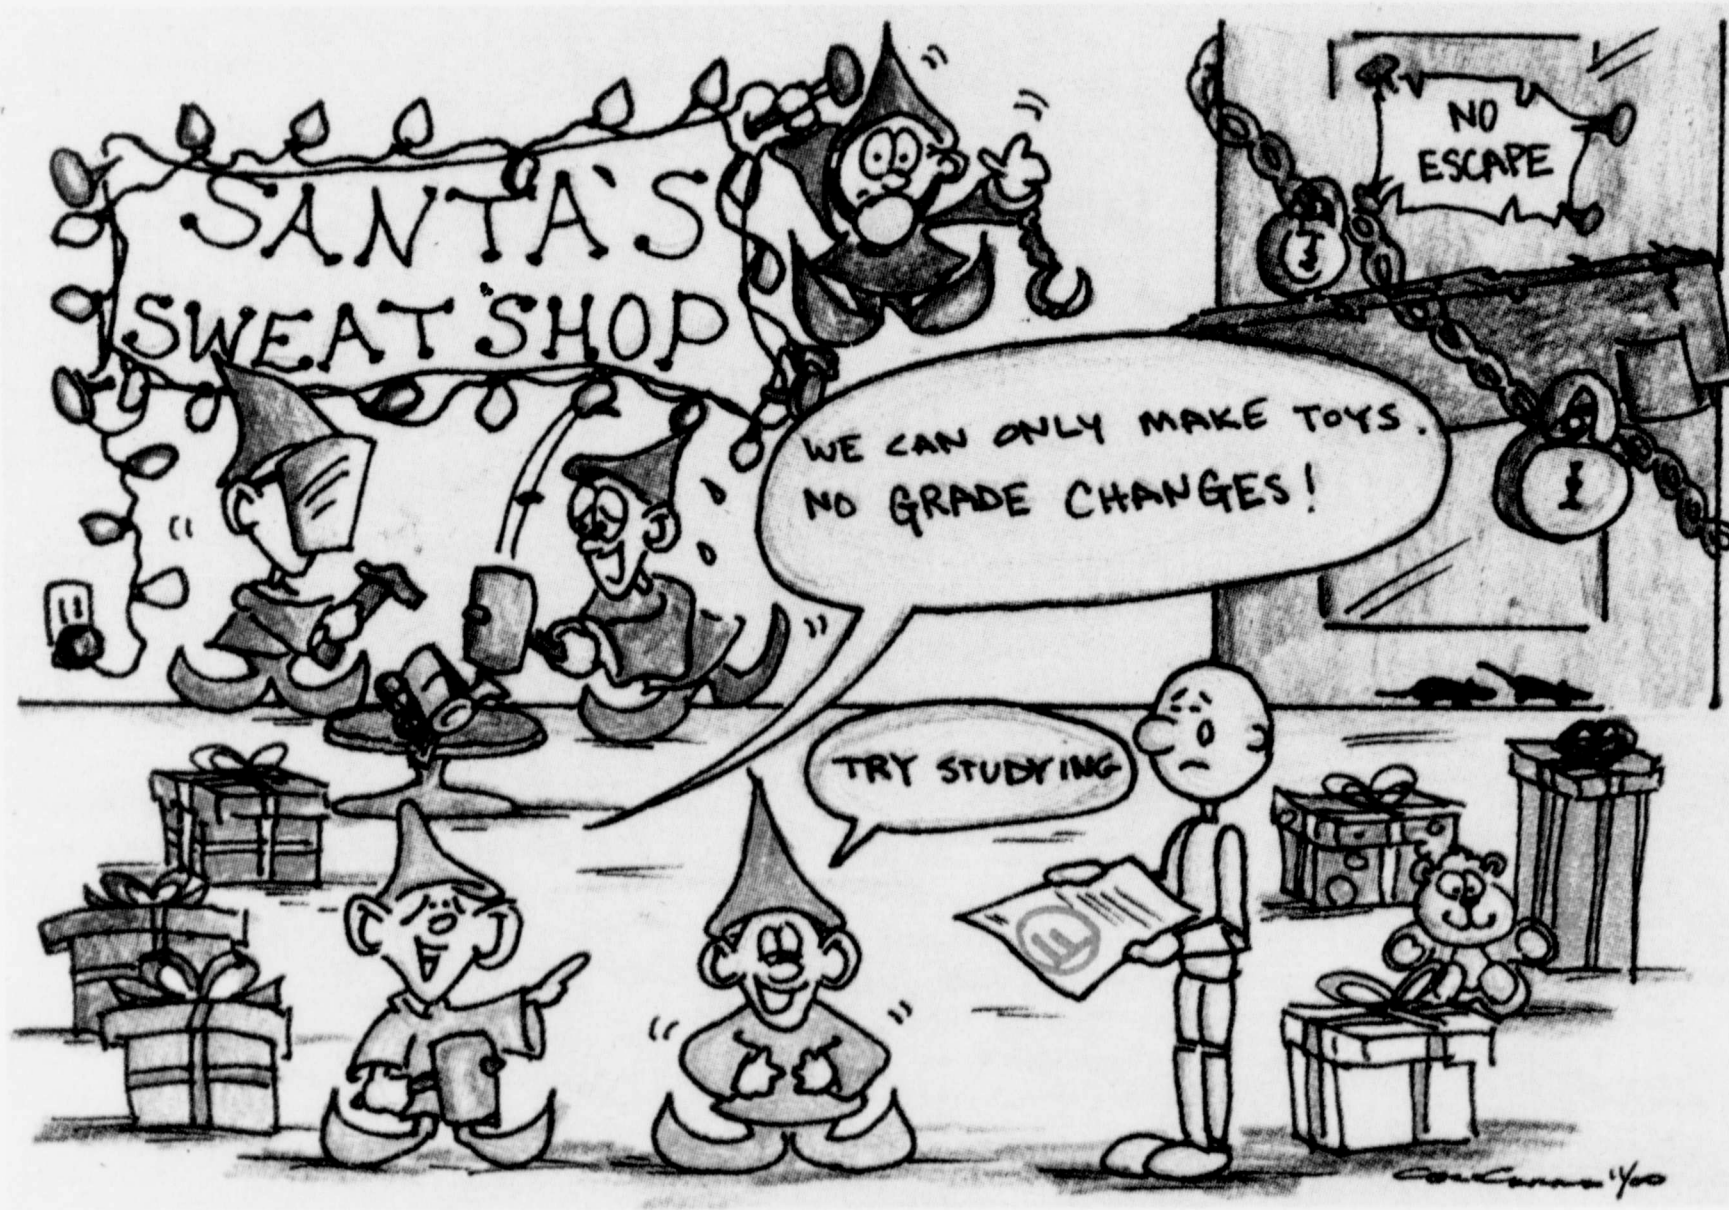 SANTA'S
SWEAT SHOP
NO
ESCAPE
WE CAN ONLY MAKE TOYS.
NO GRADE CHANGES!
TRY STUDYING
F
11/00